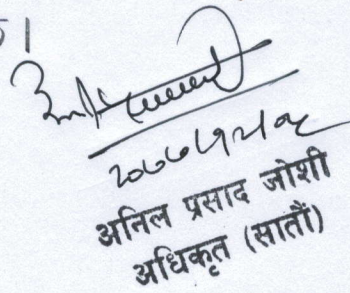 २०७७।१२।०८
अनिल प्रसाद जोशी
अधिकृत (सातौं)